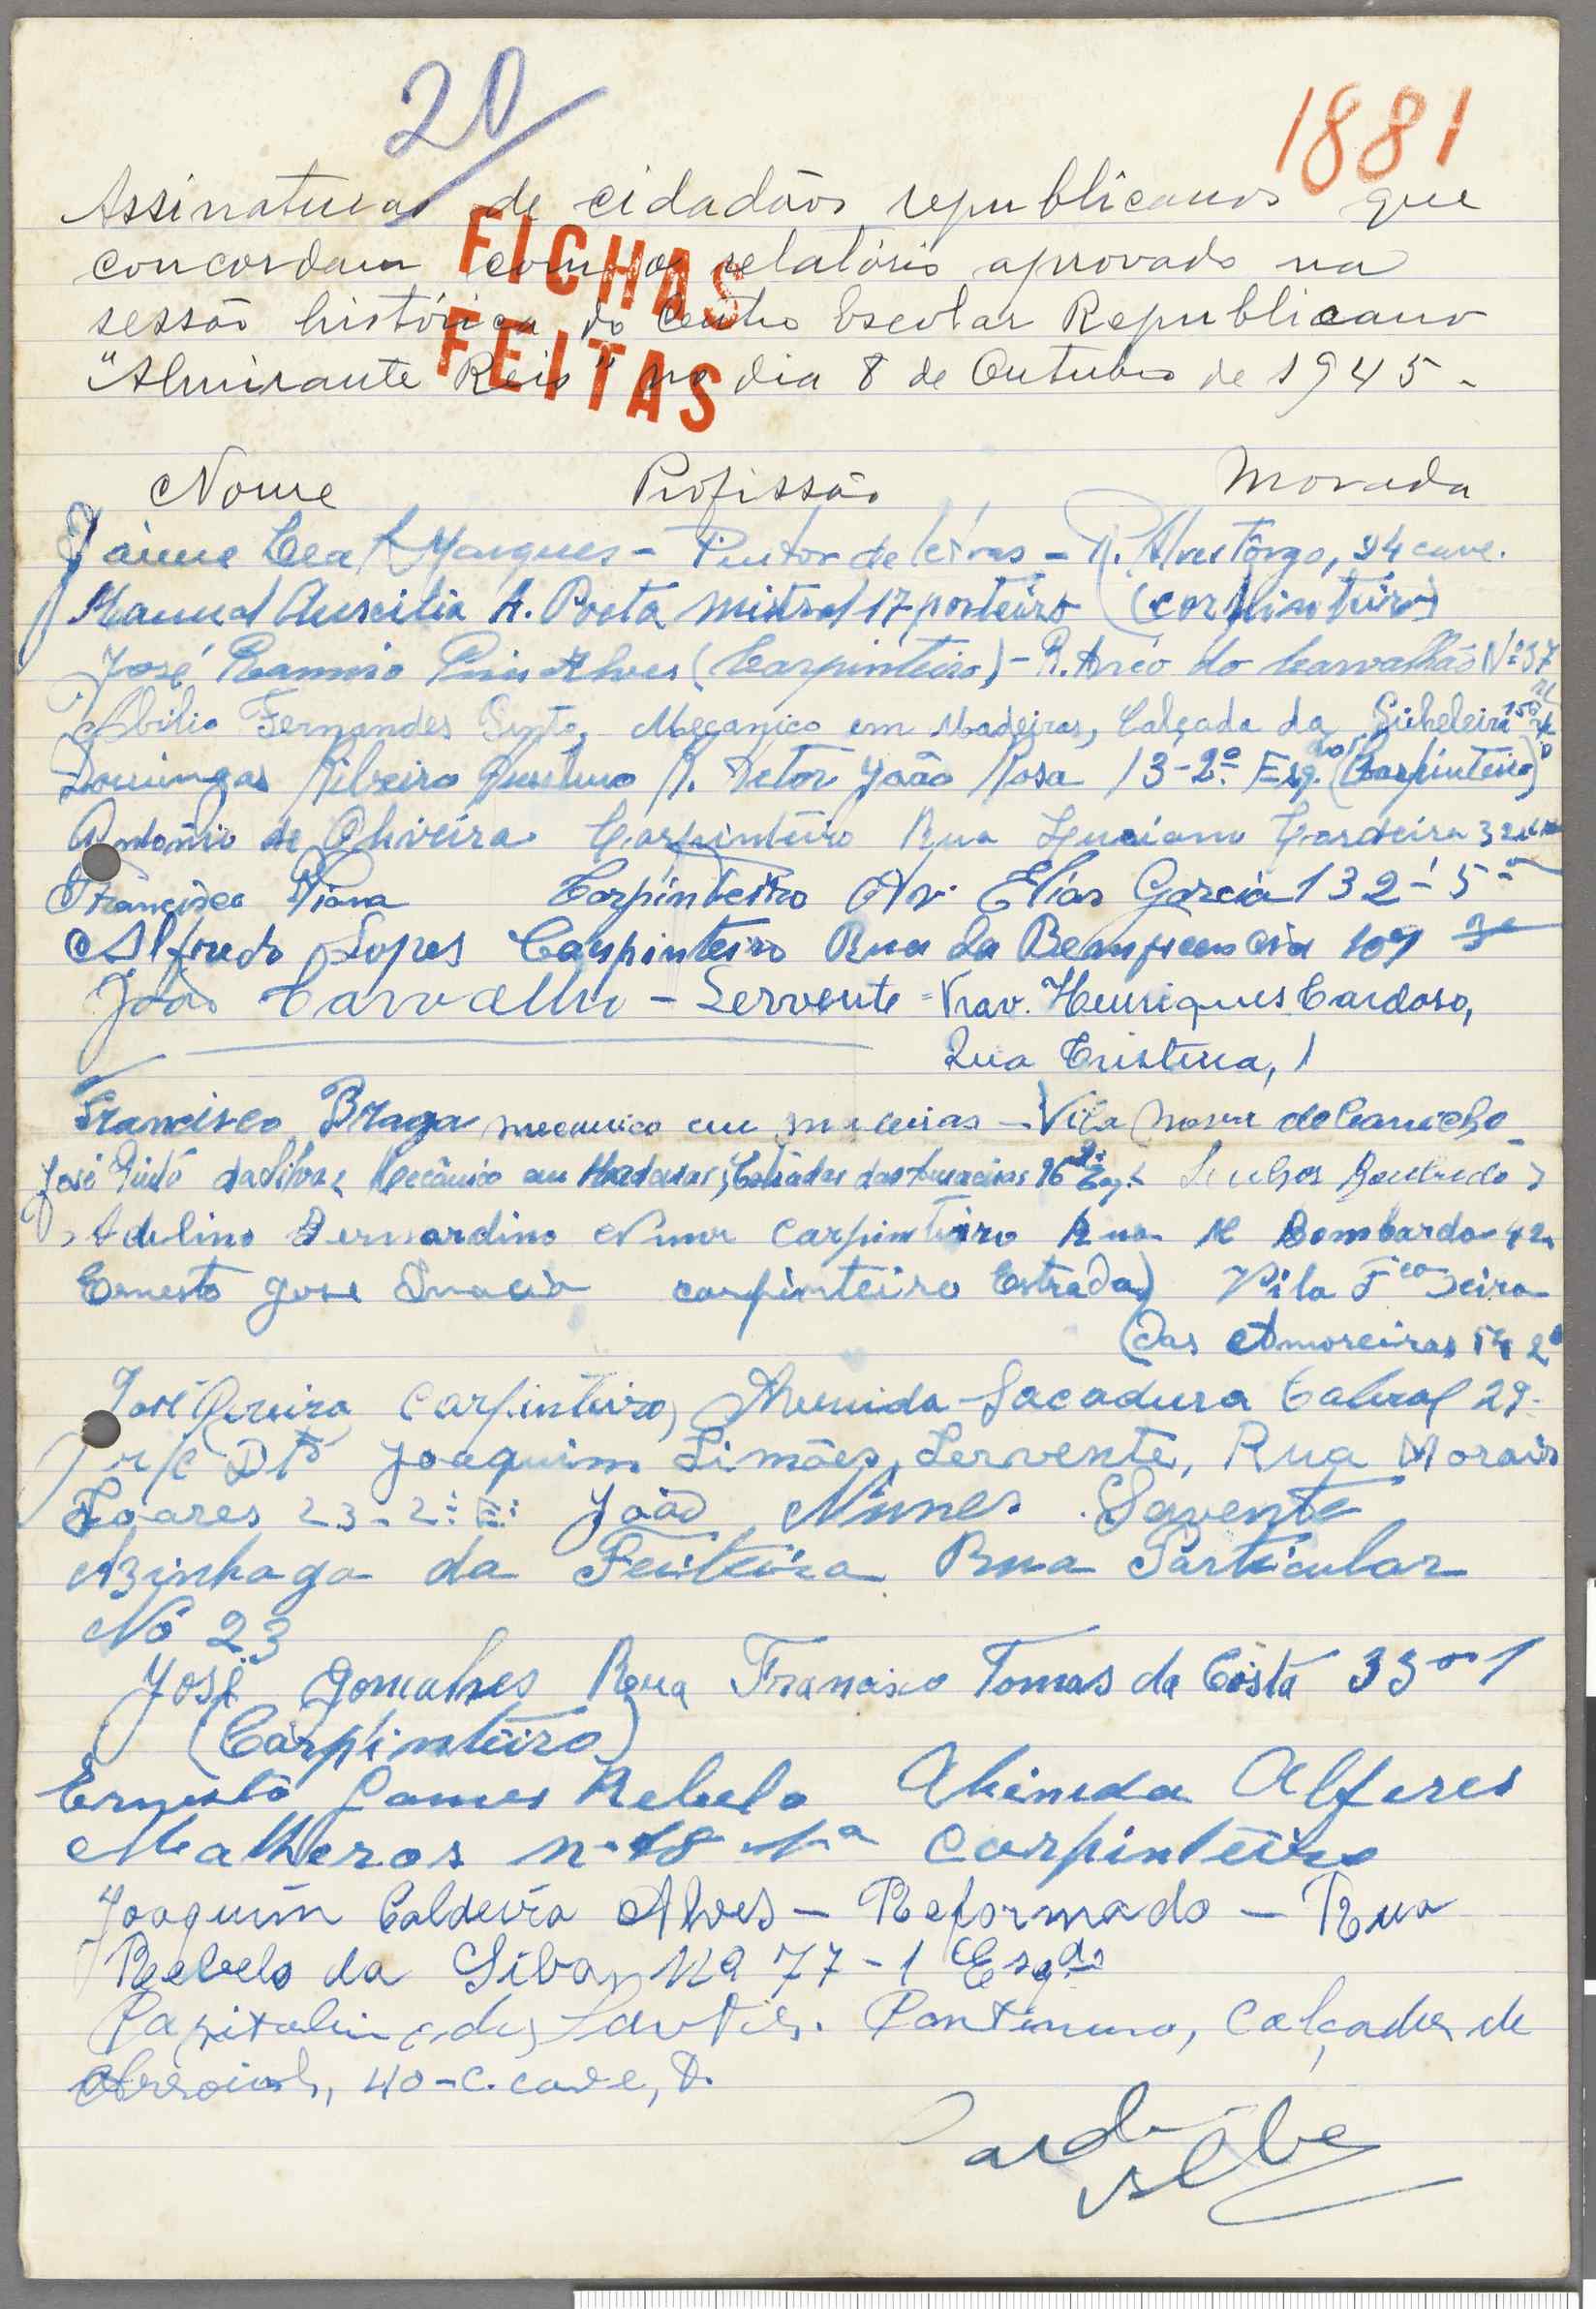 20
1881
Assinaturas de cidadãos republicanos que
concordam com o relatório aprovado na
sessão histórica do Centro Escolar Republicano
"Almirante Reis" no dia 8 de Outubro de 1945.
FICHAS
FEITAS
Nome Profissão Morada
Jaime Leal Marques - Pintor de letras - R. 24 cave.
Manuel A. Poeta Mistral 17 porteiro (corpinteiro)
José Ramiro Pires Alves (Carpinteiro) - R. Arco do Carvalhão Nº 37
Abilio Fernandes Pinto, Mecanico em Madeiras, Calçada da
Domingos Ribeiro R. Reitor João Rosa 13-2º Esq. (Carpinteiro)
António de Oliveira Carpinteiro Rua Luciano Cordeiro
Francisco Viana Carpinteiro Av. Elias Garcia 132-5º
Alfredo Lopes Carpinteiro Rua da 109 3º
João Carvalho - Servente = Trav. Henriques Cardoso,
Rua Cristina, 1
Francisco Braga mecanico em madeiras - Vila Nova do
José Pinto da Silva, Mecânico em Madeiras, Estrada das Amoreiras
Adelino Bernardino Nune Carpinteiro Rua M Bombarda 42
Ernesto Jose Inacio carpinteiro Estrada) Vila
(das Amoreiras 2º
José Pereira Carpinteiro, Avenida Sacadura Cabral 29-
r/c Dtº Joaquim Simões, Servente, Rua Morais
Soares 23-2º E. João Nunes Servente
Azinhaga da Feiteira Rua Particular
Nº 23
José Goncalves Rua Francisco Tomas da Costa 33 1
(Carpinteiro)
Ernesto Gomes Rebelo Avenida Alferes
Malheros n-18 Carpinteiro
Joaquim Caldeira Alves - Reformado - Rua
Rebelo da Silva, Nº 77-1 Esqdo
Capitolino dos Santos. Calçada de
Arroios, 40-C. cave, D.